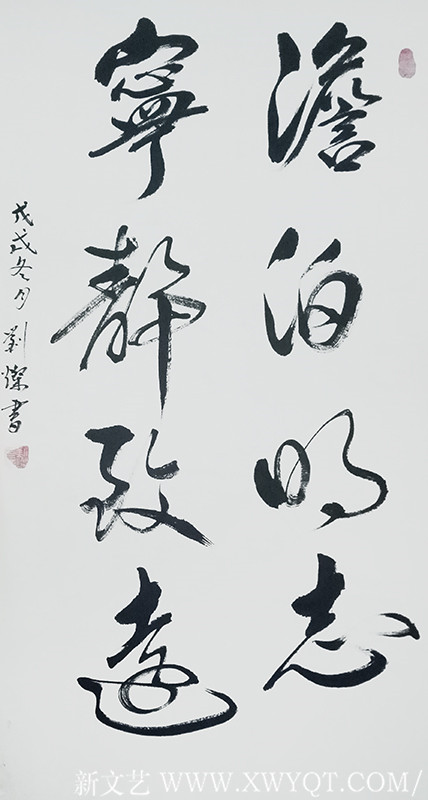 澹泊明志
寧靜致遠
戊戌冬月劉燦書
新文艺 WWW.XWYQT.COM/